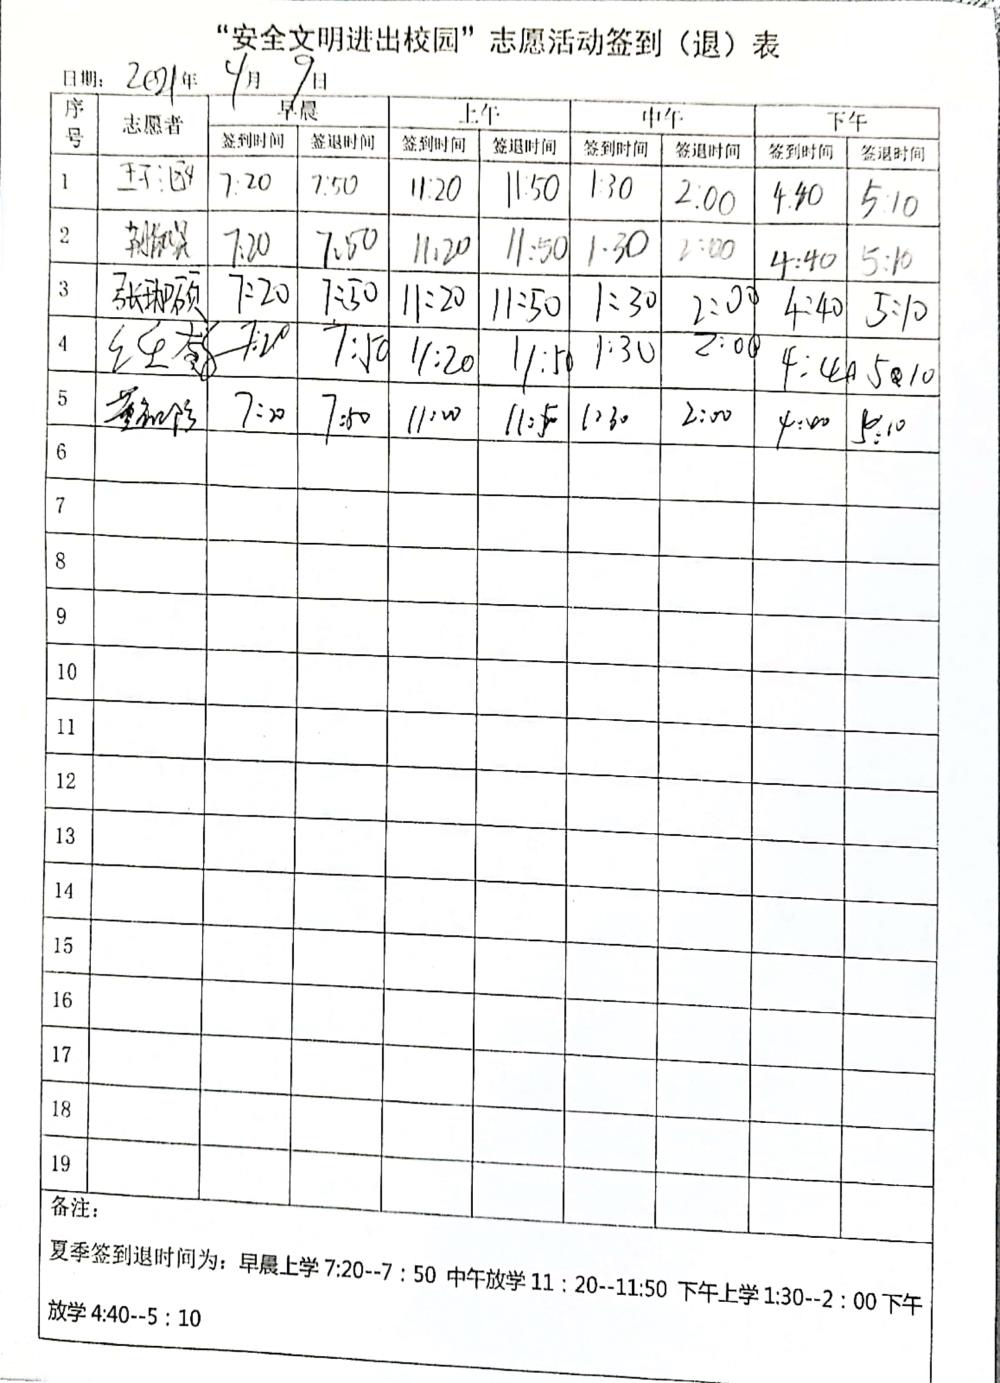 “安全文明进出校园”志愿活动签到（退）表
日期： 2021年 4月 9日
序号 志愿者 早晨 上午 中午 下午
签到时间 签退时间 签到时间 签退时间 签到时间 签退时间 签到时间 签退时间
1 7:20 7:50 11:20 11:50 1:30 2:00 4:40 5:10
2 7:20 7:50 11:20 11:50 1:30 2:00 4:40 5:10
3 7:20 7:50 11:20 11:50 1:30 2:00 4:40 5:10
4 7:20 7:50 11:20 11:50 1:30 2:00 5:10
5 7:20 7:50 11:20 11:50 1:30 2:00 5:10
6
7
8
9
10
11
12
13
14
15
16
17
18
19
备注：
夏季签到退时间为：早晨上学 7:20--7：50 中午放学 11：20--11:50 下午上学 1:30--2：00 下午
放学 4:40--5：10